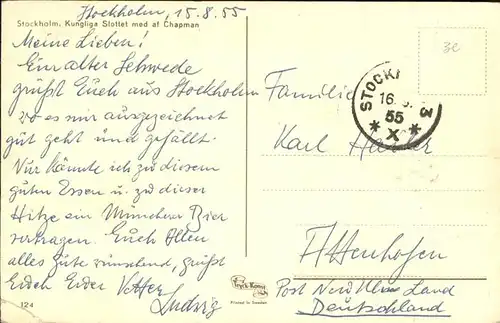 Stockholm, 15.8.55
Stockholm. Kungliga Slottet med af Chapman
Meine Lieben!
Ein alter Schwede
grüßt Euch aus Stockholm
wo es mir ausgezeichnet
gut geht und gefällt.
Nur könnte ich zu diesem
guten Essen u. zu dieser
Hitze ein Münchener Bier
vertragen. Euch Allen
alles Gute wünschend, grüßt
Euch Euer Vetter
Ludwig
124
Printed in Sweden
3E
STOCK 3
16. 55
X
Familie
Karl
Attenhofen
Post Land
Deutschland